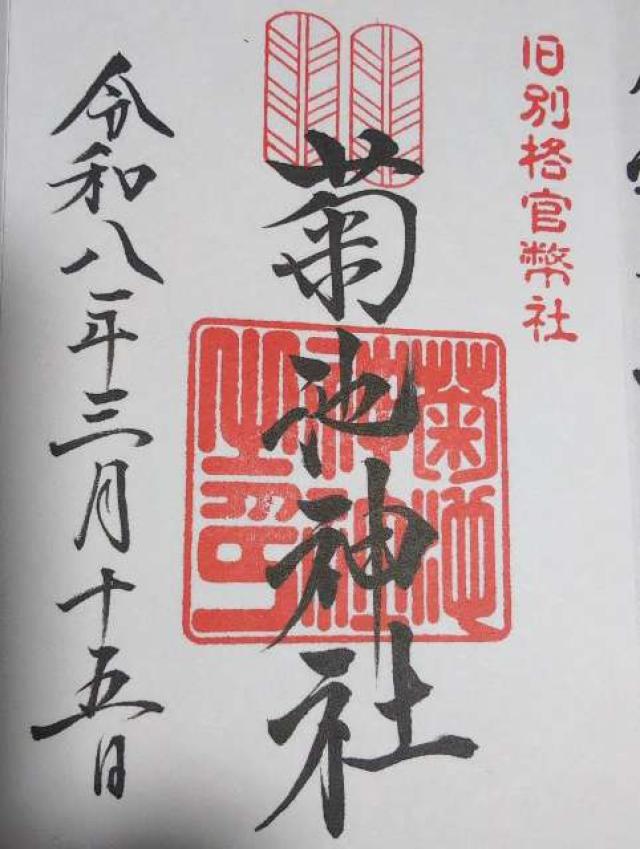 旧別格官幣社
菊池神社
菊池
神社
之印
令和八年三月十五日